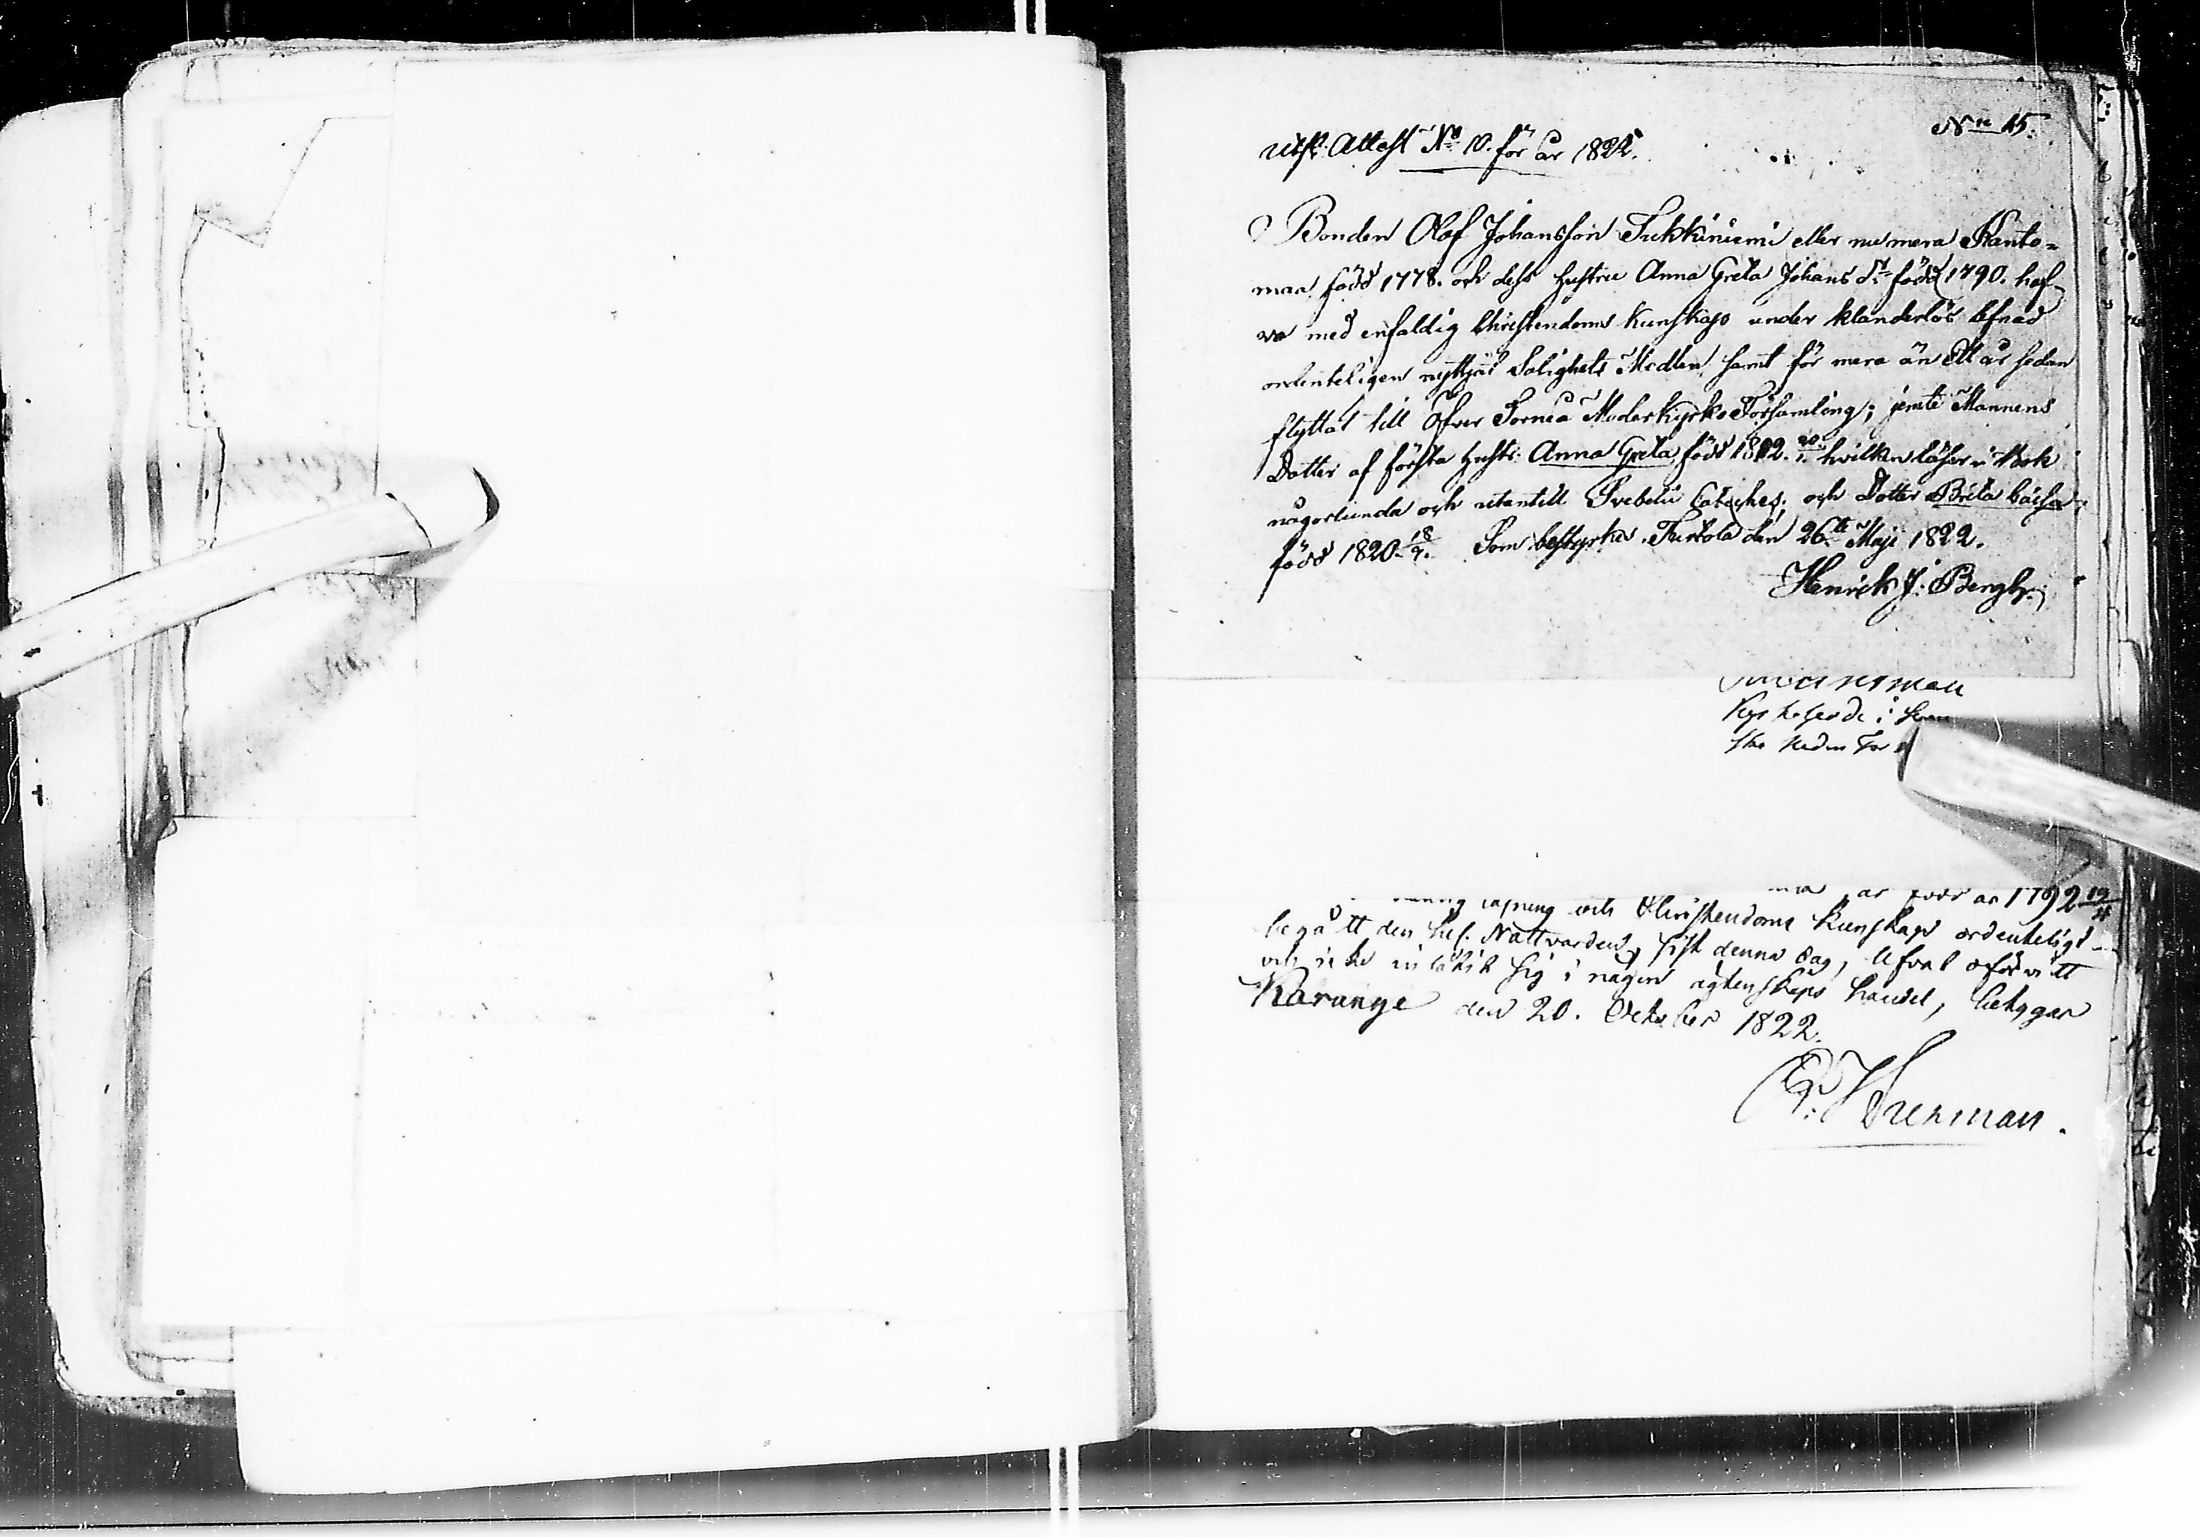 Nro 45.
Utfl. Attest No 10. för år 1822.
Bonden Olof Johansson Tukkiniemi eller nu mera Kanto=
maa född 1778. och dess hustru Anna Greta Johans dr född 1790. haf
va med enfaldig Christendoms kunskap under klanderlös lefnad
ordenteligen nyttjat Salighets Medlen samt för mera än Ett år sedan
flyttat till Öfver Torneå Moderkyrko Församling; jemte Mannens
Dotter af första hustr: Anna Greta född 1812. hvilken läser i Bok
någorlunda och utantill Svebelii Cateches; och Dotter Brita Caisa,
född 1820 18/7. Som bestyrkes. Turtola den 26te Maji 1822.
Henrik J. Bergh.
Kyrkoherde i
Neder Tor
är född år 1792
läsning och Christendoms kunskap ordenteligt
begått den hel. Nattvarden, sist denna dag, lefvat oförvitt
och icke inlåtit sig i någon ägtenskaps handel, betygar
Karunge den 20. October 1822.